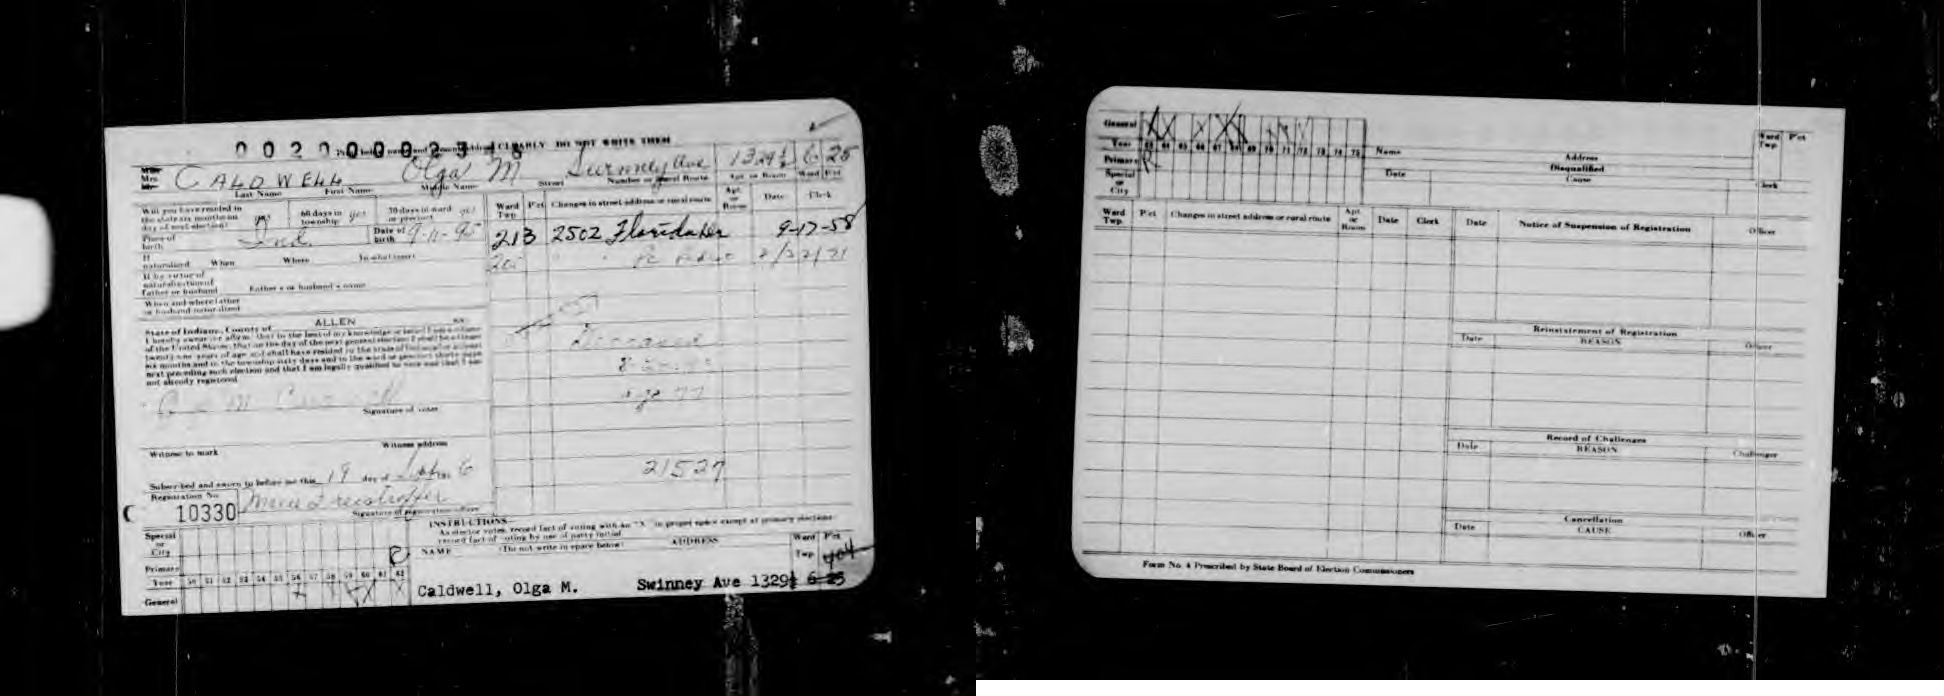 0020000023
CLEARLY DO NOT WRITE THEM
Mrs. CALDWELL Olga M Swinney Ave 1329½ 6 25
Last Name First Name Middle Name Street Number or Rural Route Apt. or Room Ward Pct
Will you have resided in the state six months on day of next election? yes 60 days in township yes 30 days in ward or precinct yes
Place of birth Ind. Date of birth 9-11-95
If naturalized When Where In what court
If by virtue of naturalization of Father or husband Father's or husband's name
When and where father or husband naturalized
Ward Twp. P'ct Changes in street address or rural route Apt. or Room Date Clerk
213 2502 Florida 9-17-58
State of Indiana, County of ALLEN ss:
I hereby swear (or affirm) that to the best of my knowledge or belief I am a citizen
of the United States, that on the day of the next general election I shall be at least
twenty-one years of age and shall have resided in the state of Indiana at least
six months and in the township sixty days and in the ward or precinct thirty days
next preceding such election and that I am legally qualified to vote and that I am
not already registered
Signature of voter
Deceased
age 77
Witness to mark Witness address
21527
Subscribed and sworn to before me this 19 day of
Registration No.
C 10330
Signature of registration officer
INSTRUCTIONS
As elector votes, record fact of voting with an "X" in proper space except at primary elections
record fact of voting by use of party initial
NAME (Do not write in space below) ADDRESS Ward Twp. P'ct
404
Special or City
Primary
Year 50 51 52 53 54 55 56 57 58 59 60 61 62
General
Caldwell, Olga M. Swinney Ave 1329½ 6-25
General
Year 63 64 65 66 67 68 69 70 71 72 73 74 75
Primary R
Special or City
Name Address Ward Twp. P'ct
Date Disqualified Cause Clerk
Ward Twp. P'ct Changes in street address or rural route Apt. or Room Date Clerk
Date Notice of Suspension of Registration Officer
Reinstatement of Registration
Date REASON Officer
Record of Challenges
Date REASON Challenger
Cancellation
Date CAUSE Officer
Form No. 4 Prescribed by State Board of Election Commissioners